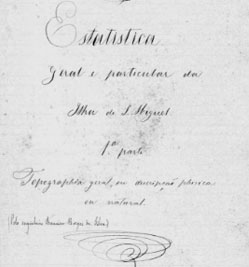 Estatistica
Geral e particular da
Ilha de S. Miguel
1ª parte
Topographia geral, ou descripção phisica
ou natural.
(Pelo conselheiro Francisco Borges da Silva)